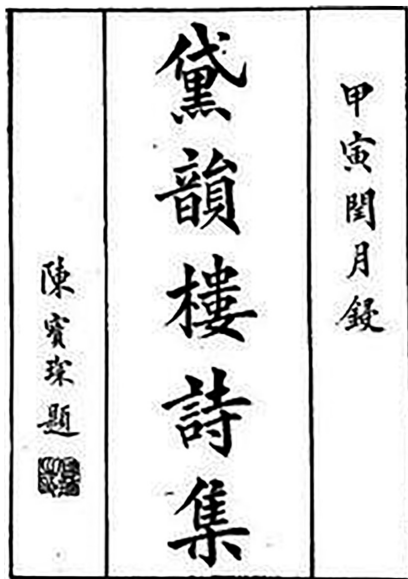 甲寅閏月鋟
黛韻樓詩集
陳寶琛題